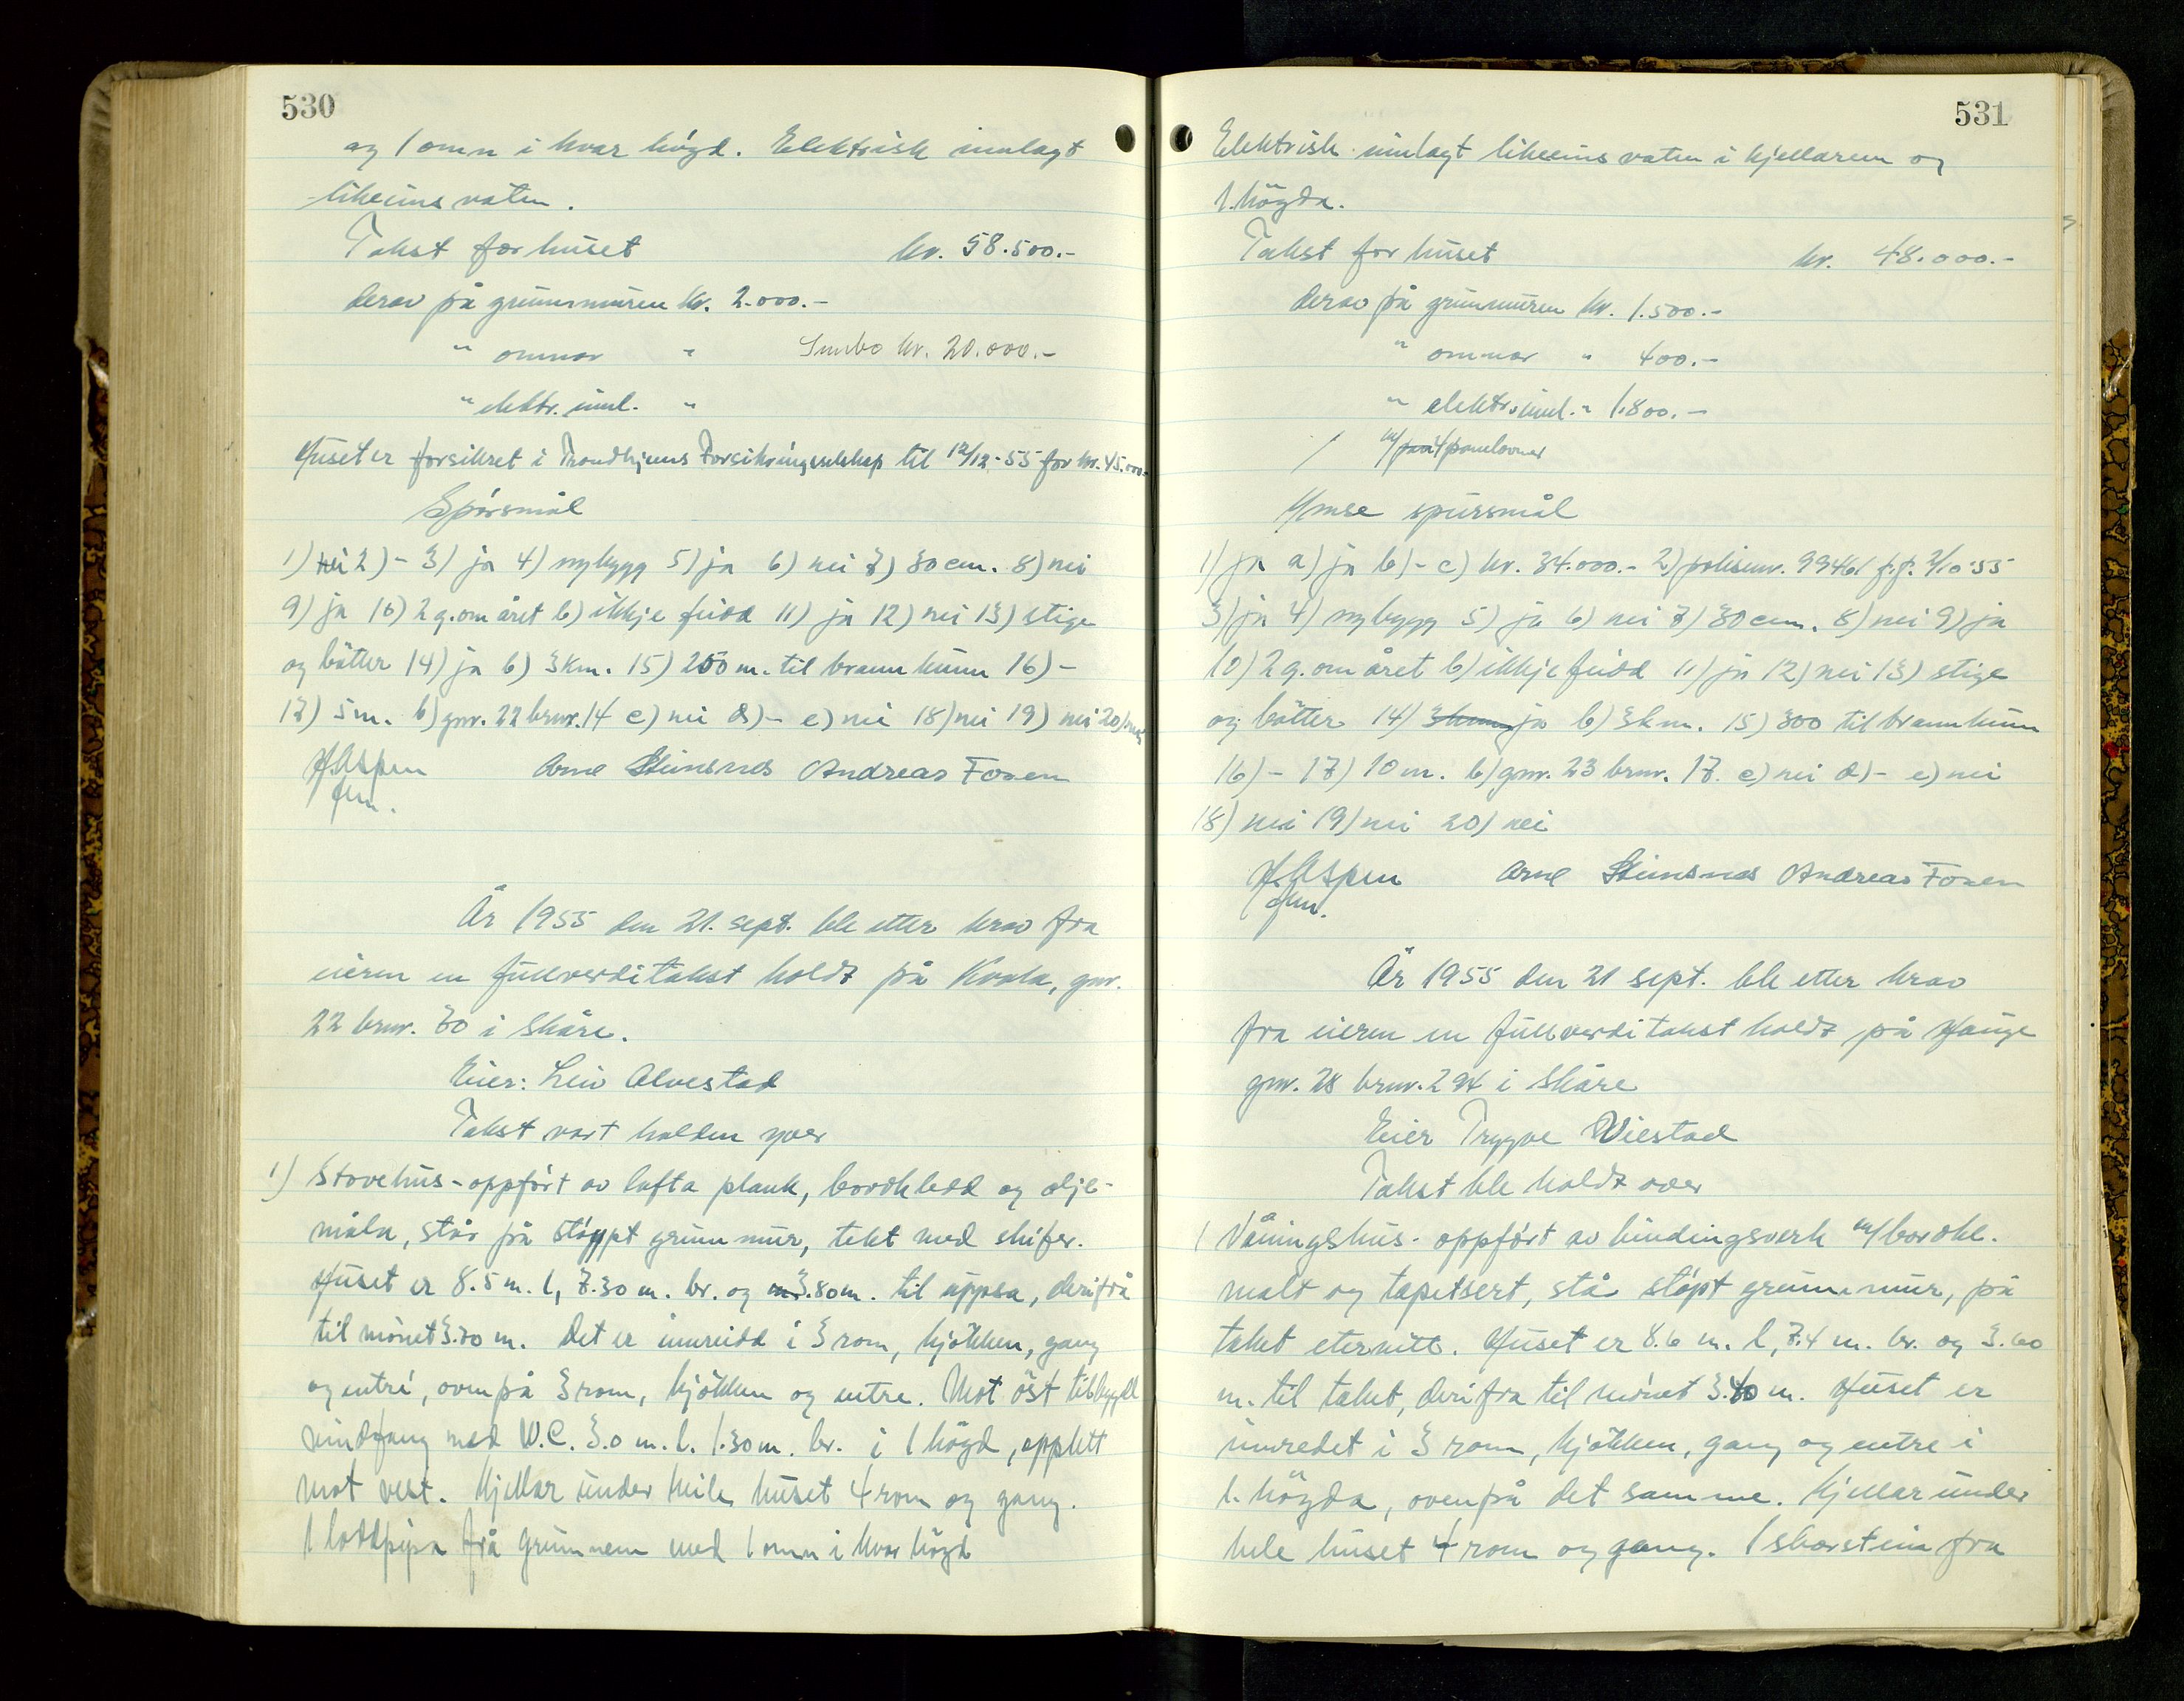 530
og 1 omn i kvar høgd. Elektrisk innlagt
likeeins vatn.
Takst for huset kr. 58.500.-
derav på grunnmuren kr. 2.000.-
" omnar " Innbo kr. 20.000.-
" elektr. innl. "
Huset er forsikret i Trondhjems Forsikringsselskap til 12/12-55 for kr. 45.000.-
Spørsmål
1) nei 2) - 3) ja 4) nybygg 5) ja 6) nei 7) 30 cm. 8) nei
9) ja 10) 2 g. om året b) ikkje feidd 11) ja 12) nei 13) stige
og bøtter 14) ja b) 3 km. 15) 250 m. til brannkum 16) -
17) 5 m. b) gnr. 22 brnr. 14 c) nei d) - e) nei 18) nei 19) nei 20) nei
H. Aspen Arne Stensnes Andreas Foxen
fm.
År 1955 den 21. sept. ble etter krav fra
eieren en fullverditakst holdt på Kvala, gnr.
22 brnr. 70 i Skåre.
Eier: Leiv Alvestad
Takst vart halden yver
1) Stovehus - oppført av lafta plank, bordkledd og olje-
måla, står på støypt grunnmur, tekt med skifer.
Huset er 8.5 m. l, 7.30 m. br. og 3.80 m. til uppsa, derifrå
til mønet 3.70 m. Det er innreidd i 3 rom, kjøkken, gang
og entré, ovenpå 3 rom, kjøkken og entre. Mot øst tilbygdt
vindfang med W.C. 3.0 m. l. 1.30 m. br. i 1 høgd, opplett
mot vest. Kjellar under heile huset 4 rom og gang.
1 loddpipa frå grunnen med 1 omn i kvar høgd
531
Elektrisk innlagt likeeins vatn i kjellaren og
1. høgda.
Takst for huset kr. 48.000.-
derav på grunnmuren kr. 1.500.-
" omnar " 400.-
" elektr. innl. " 1.800.-
/ m/ 4 panelovner
Ymse spursmål
1) ja a) ja b) - c) kr. 34.000.- 2) polisenr. 99461 f.f. 2/10-55
3) ja 4) nybygg 5) ja 6) nei 7) 30 cm. 8) nei 9) ja
10) 2 g. om året b) ikkje feidd 11) ja 12) nei 13) stige
og bøtter 14) ja b) 3 km. 15) 300 til brannkum
16) - 17) 10 m. b) gnr. 23 brnr. 17. c) nei d) - e) nei
18) nei 19) nei 20) nei
H. Aspen Arne Stensnes Andreas Foxen
fm.
År 1955 den 21 sept. ble etter krav
fra eieren en fullverditakst holdt på Hauge
gnr. 28 brnr. 294 i Skåre
Eier Trygve Viestad
Takst ble holdt over
1 Våningshus - oppført av bindingsverk m/ bordkl.
malt og tapetsert, står støpt grunnmur, på
taket eternitt. Huset er 8.6 m. l, 7.4 m. br. og 3.60
m. til taket, derifra til mønet 3.40 m. Huset er
innredet i 3 rom, kjøkken, gang og entre i
1. høgda, ovenpå det samme. Kjellar under
hele huset 4 rom og gang. 1 skorstein fra